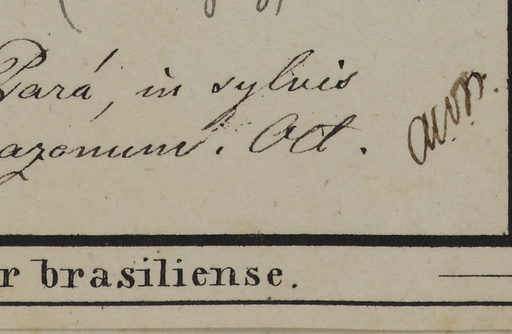 Pará, in sylvis
azonum. Oct.
r brasiliense.